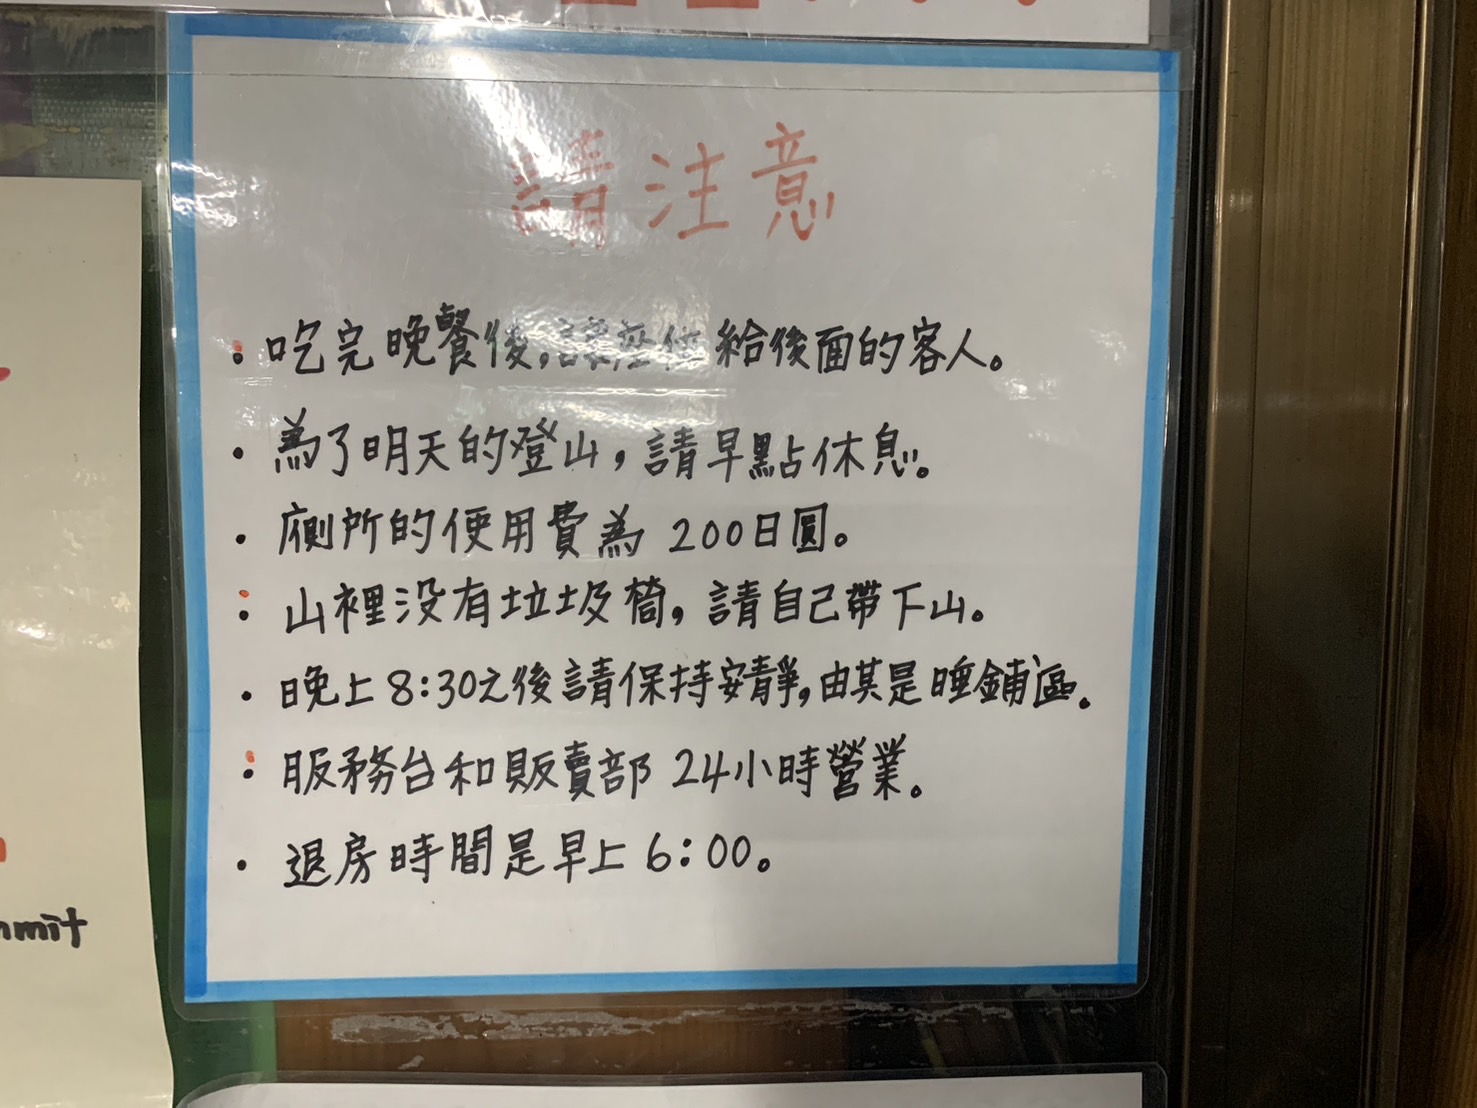 請注意
・吃完晚餐後,讓座位給後面的客人。
・為了明天的登山,請早點休息。
・廁所的使用費為 200日圓。
・山裡没有垃圾椅,請自己帶下山。
・晚上8:30之後請保持安靜,由其是睡鋪區。
・服務台和販賣部 24小時營業。
・退房時間是早上 6:00。
mmit